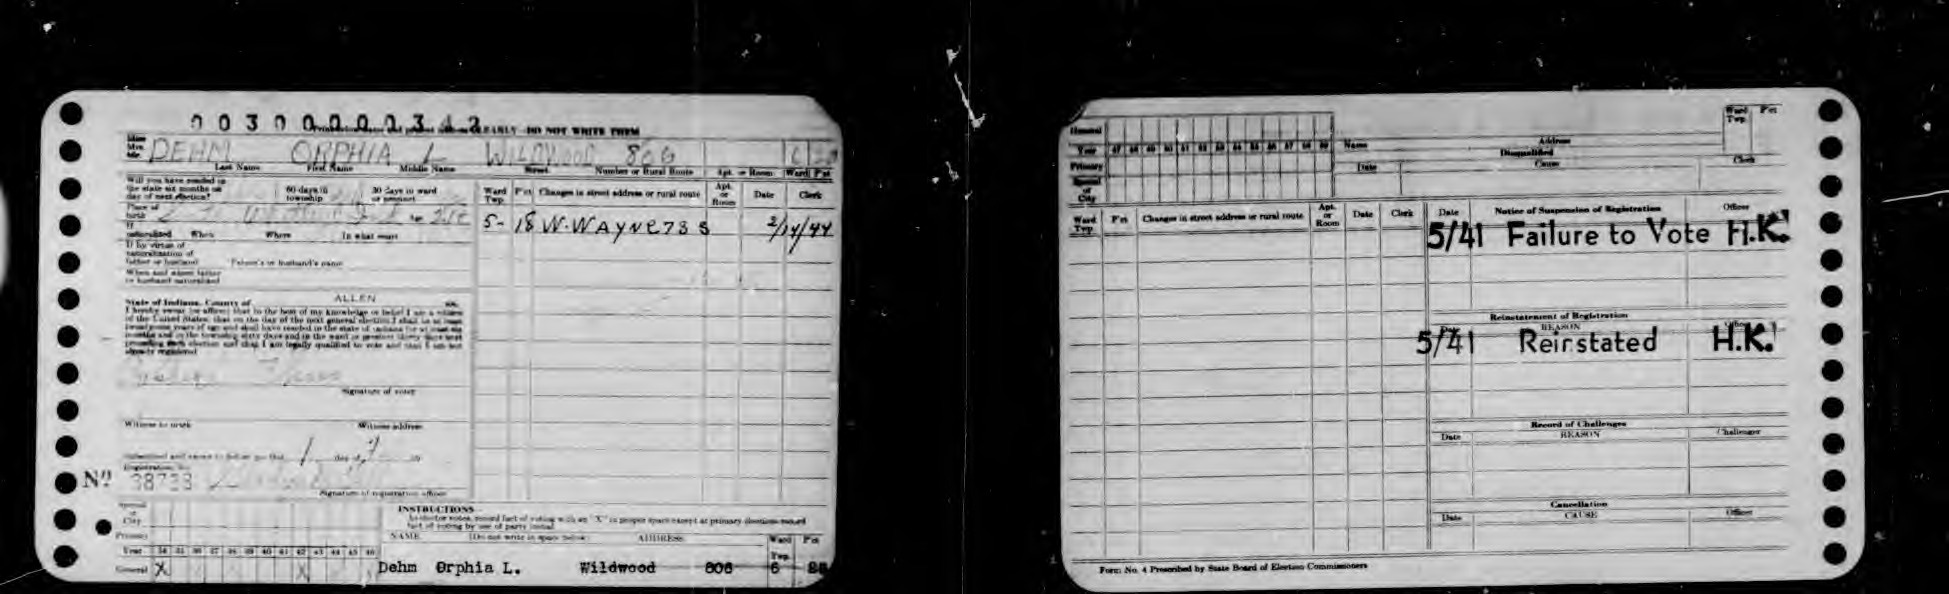 003000000342
CLEARLY - DO NOT WRITE THEM
Miss
Mrs.
Mr.
DEHM ORPHIA L WILDWOOD 806
Last Name First Name Middle Name Street Number or Rural Route Apt. or Room Ward P'ct
Will you have resided in
the state six months on
day of next election?
60 days in
township
30 days in ward
or precinct
Place of
birth
If
naturalized When Where In what court
If by virtue of
naturalization of
father or husband Father's or husband's name
When and where father
or husband naturalized
Ward
Twp. P'ct Changes in street address or rural route Apt.
or
Room Date Clerk
5- 18 W. WAYNE 735 3/14/44
State of Indiana, County of ALLEN ss.
I hereby swear (or affirm) that to the best of my knowledge or belief I am a citizen
of the United States; that on the day of the next general election I shall be at least
twenty-one years of age and shall have resided in the state of Indiana for at least six
months and in the township sixty days and in the ward or precinct thirty days next
preceding such election and that I am legally qualified to vote and that I am not
already registered
Signature of voter
Witness to mark Witness address
Subscribed and sworn to before me this day of 19
Registration No.
No 38733
Signature of registration officer
Special
or
City
Primary
Year 34 35 36 37 38 39 40 41 42 43 44 45 46
General X X
INSTRUCTIONS
As elector votes, record fact of voting with an "X" in proper space except at primary election record
fact of voting by use of party initial
NAME (Do not write in space below) ADDRESS Ward
Twp. P'ct
Dehm Orphia L. Wildwood 806 6
General
Year 47 48 49 50 51 52 53 54 55 56 57 58 59
Primary
Special
or
City
Name Address Ward
Twp. P'ct
Disqualified
Date Cause Clerk
Ward
Twp. P'ct Changes in street address or rural route Apt.
or
Room Date Clerk
Date Notice of Suspension of Registration Officer
5/41 Failure to Vote H.K.
Reinstatement of Registration
Date REASON Officer
5/41 Reinstated H.K.
Record of Challenges
Date REASON Challenger
Cancellation
Date CAUSE Officer
Form No. 4 Prescribed by State Board of Election Commissioners